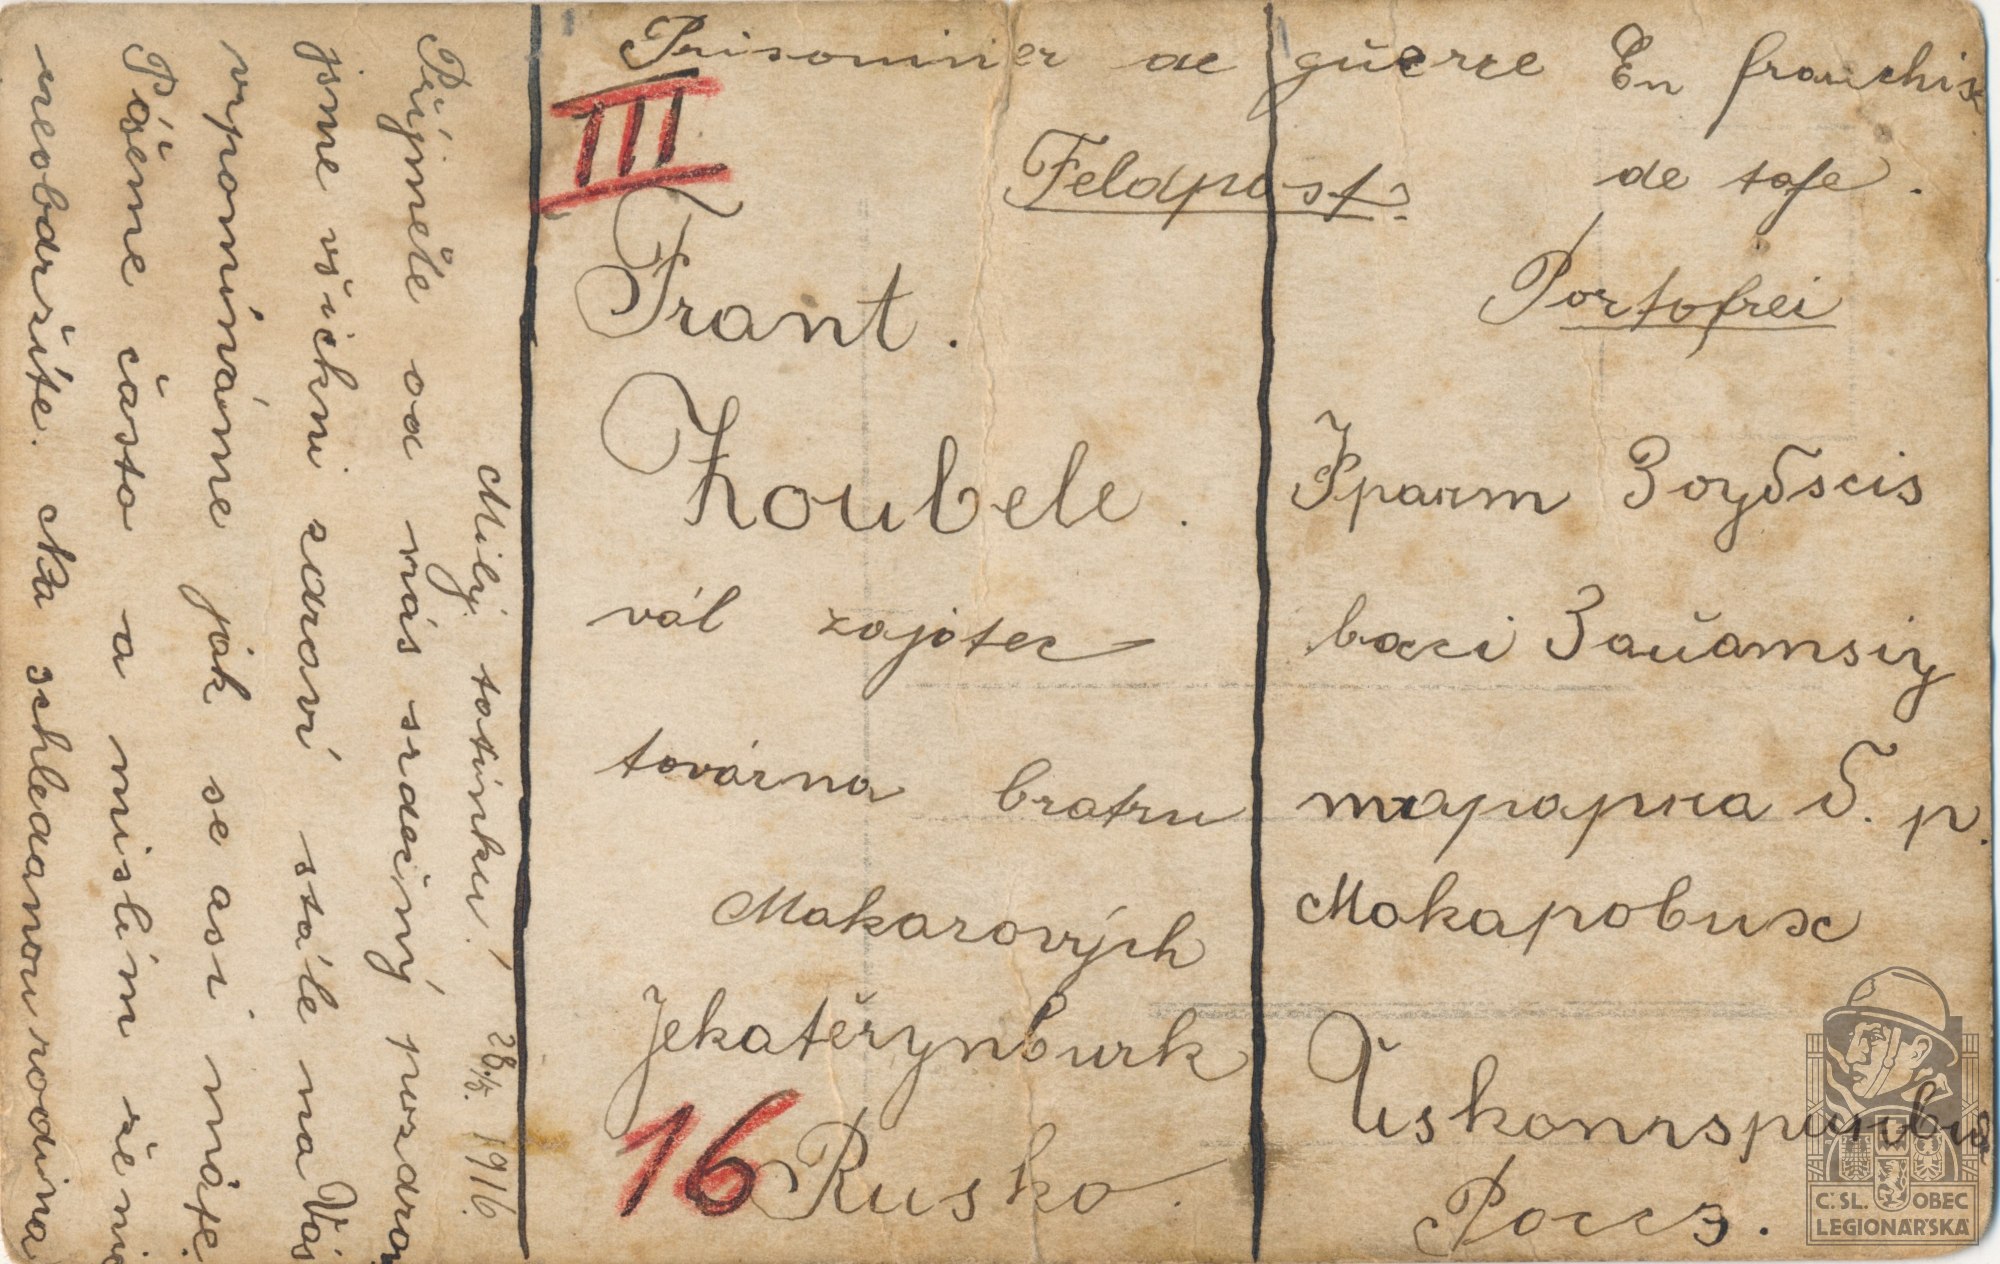 Prisoninier de guerre En franchise
III
Feldpost.
de tafe.
Portofrei
Frant.
Zoubele.
vál zajatec
továrna bratru
Makarových
Jekatěrynburk
16 Rusko.
Франт Зоубеis
баси
б. р.
Макарових
Росиз.
Milý tatínku! 28./5. 1916.
Příjměte od nás srdečný pozdrav
jsme všickni zdraví stále na Vás
vzpomínáme jak se asi máte.
Píšeme často a mislím že nic
neobdržíte. Na schledanou rodina
Č.SL. OBEC
LEGIONÁŘSKÁ